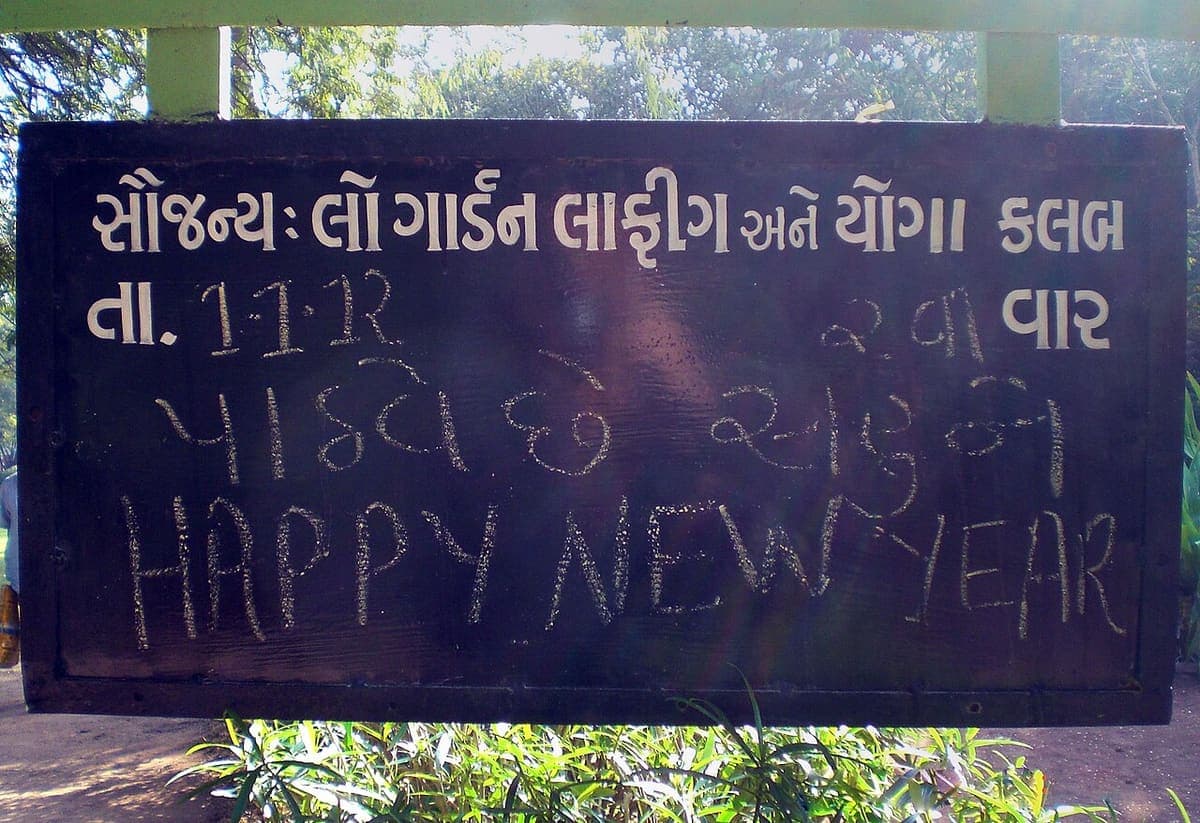 સૌજન્ય: લૉ ગાર્ડન લાફીગ અને યૉગા કલબ
તા. 1.1.12 રવી વાર
પાઠવે છે સહુને
HAPPY NEW YEAR